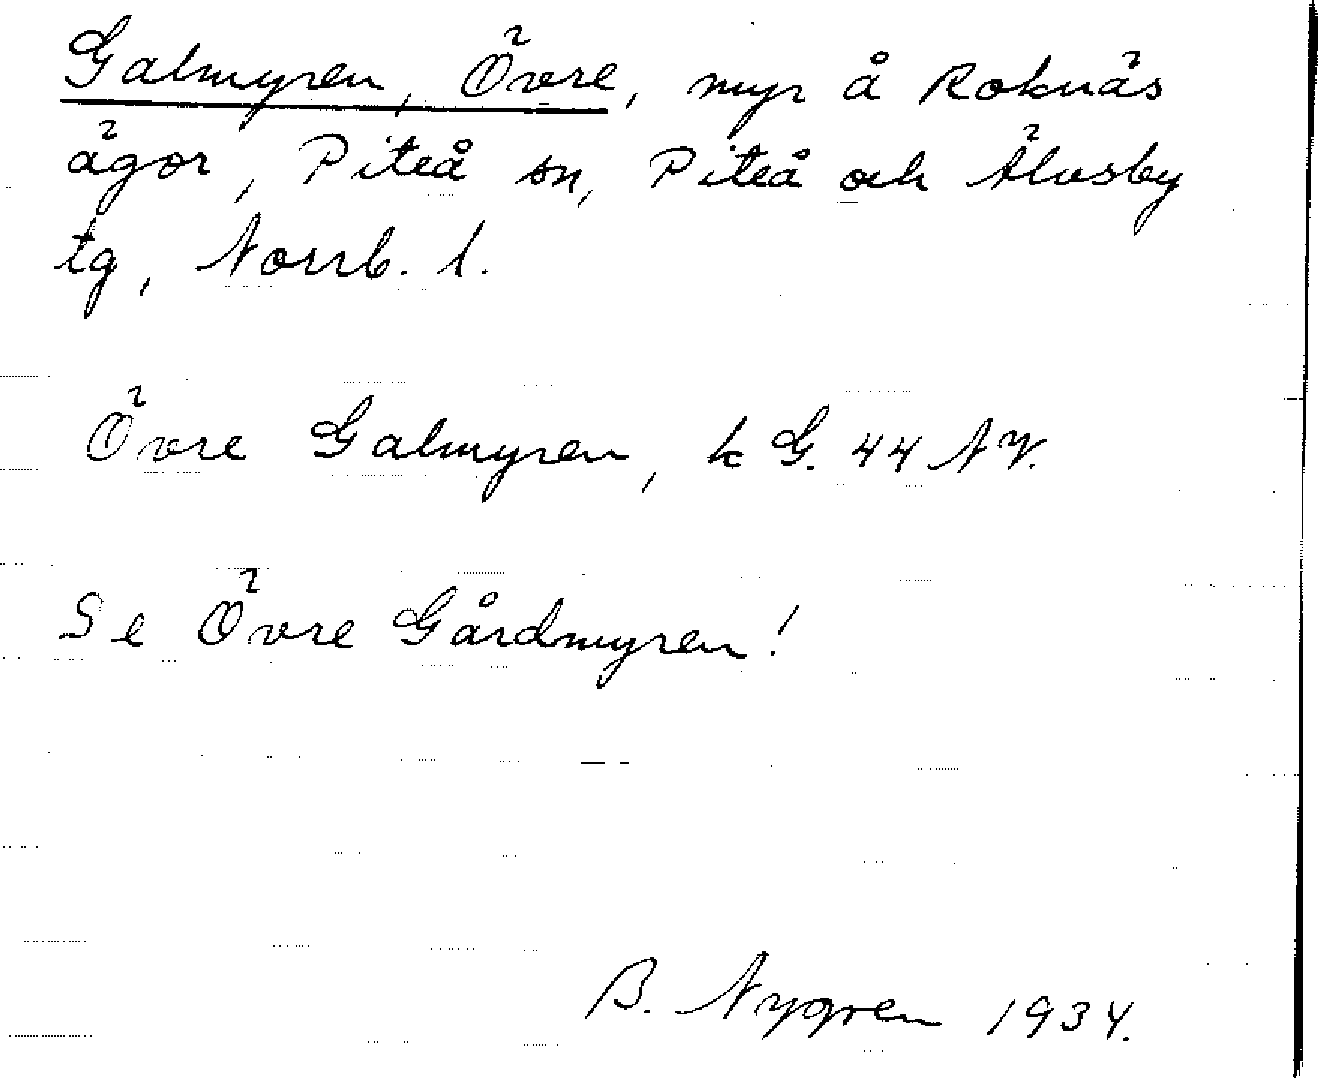 Galmyren, Övre, myr å Roknäs
ägor, Piteå sn, Piteå och Älvsby
tg, Norrb. l.
Övre Galmyren, k G. 44 NV.
Se Övre Gårdmyren!
B. Nygren 1934.